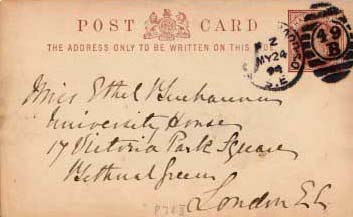 POST CARD
THE ADDRESS ONLY TO BE WRITTEN ON THIS
Z
MY 24
94
S.E
49
B
Miss Ethel Buchanan
University House
17 Victoria Park Square
Bethnal Green
London E.
P703